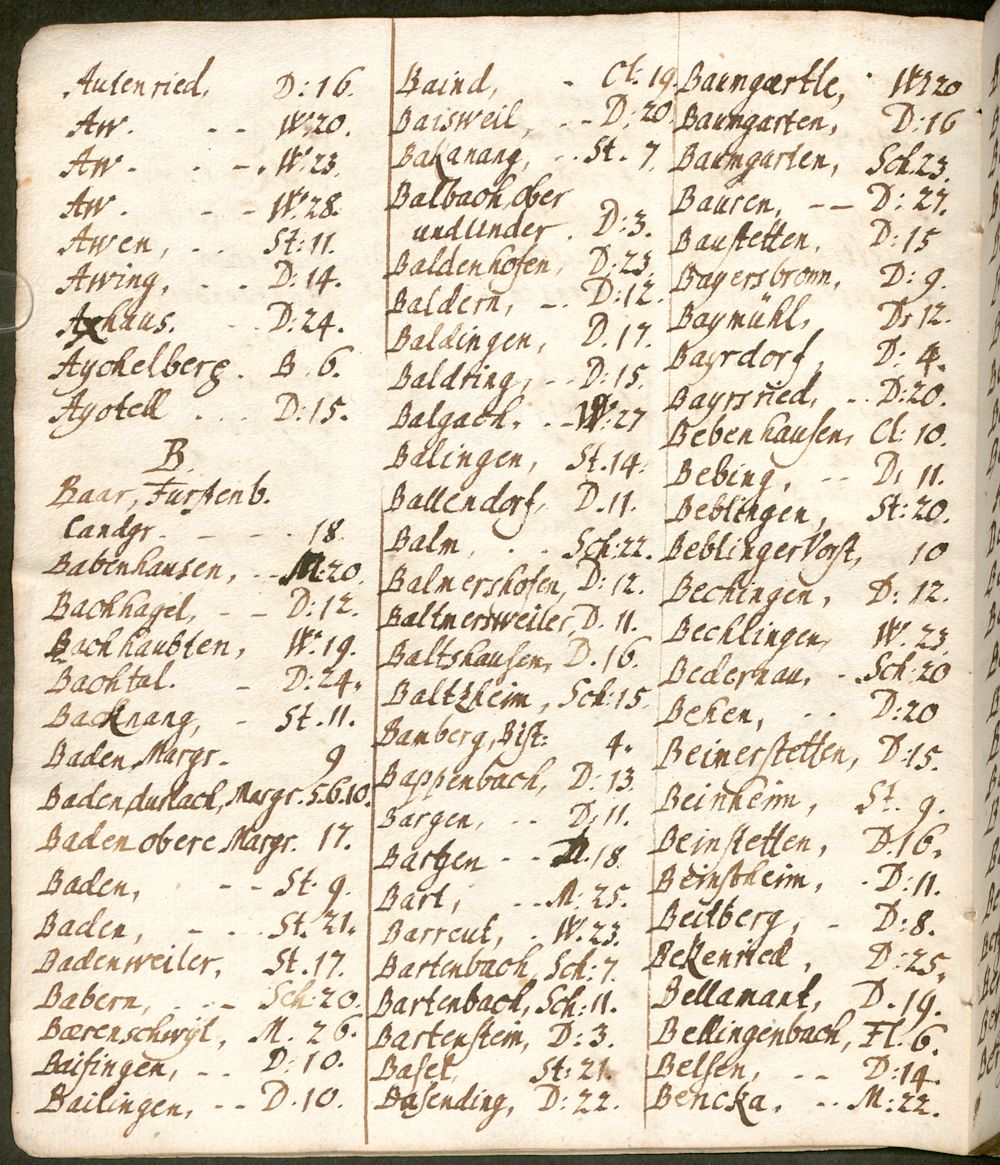 Autenried, D: 16.
Aw. - - W: 20.
Aw. - - W: 23.
Aw. - - W: 28.
Awen, . . St: 11.
Awing, . . D: 14.
Axhaus. - D: 24.
Aychelberg. B. 6.
Aytell . . . D: 15.
B.
Baar, Furstenb.
Landgr. - - - . 18.
Babenhausen, - - M: 20.
Bachhagel, - - D: 12.
Bachhaubten, W: 19.
Bachtal. - D: 24.
Backnang, - St. 11.
Baden, Margr. 9
Baden durlach, Margr. 5. 6. 10.
Baden obere Margr. 17.
Baden, - - St. 9.
Baden, - . . St. 21.
Badenweiler, St. 17.
Babern, - - - Sch: 20.
Bærenschwyl, M. 26.
Baisingen, - - D: 10.
Bailingen, - - D. 10.
Baind, - Cl: 19.
Baisweil, - - D: 20
Bakanang, . . St. 7.
Balbach, ober
und Under . D: 3.
Baldenhofen, D: 23.
Baldern, - . D: 12.
Baldingen, D. 17.
Baldring, - - D: 15.
Balgach. . - W: 27
Balingen, St. 14.
Ballendorf, D. 11.
Balm, . . Sch: 22.
Balmershofen, D: 12.
Baltmersweiler, D. 11.
Baltshausen, D. 16.
Baltzheim, Sch: 15.
Bamberg, Bist: 4.
Bappenbach, D: 13.
Bargen, - - D: 11.
Bartzen - - D. 18.
Bart, . . M: 25.
Barreut, . W. 23.
Bartenbach, Sch: 7.
Bartenbach, Sch: 11.
Bartenstein, D: 3.
Basel, St: 21.
Basending, D: 22.
Baumgærtle, W: 20
Baumgarten, D: 16
Baumgarten, Sch. 23.
Bauren, - - D: 27.
Baustetten, D: 15
Bayersbronn, D: 9.
Baymühl, D: 12.
Bayrdorf, D: 4.
Bayrsried, . . D: 20.
Bebenhausen, Cl: 10.
Bebing, - - D: 11.
Beblingen, St: 20.
Beblinger Vorst, 10
Bechingen, D: 12.
Bechlingen, W. 23.
Bedernau, . Sch: 20
Behen, . . D: 20
Beinerstetten, D: 15.
Beinheim, St. 9.
Beinstetten, D. 16.
Beinstheim, . D: 11.
Beitberg, - D: 8.
Bekenried, D: 25.
Bellamant, D. 19.
Bellingenbach, Fl. 6.
Belsen, - - D: 14.
Bencka, . . M: 22.